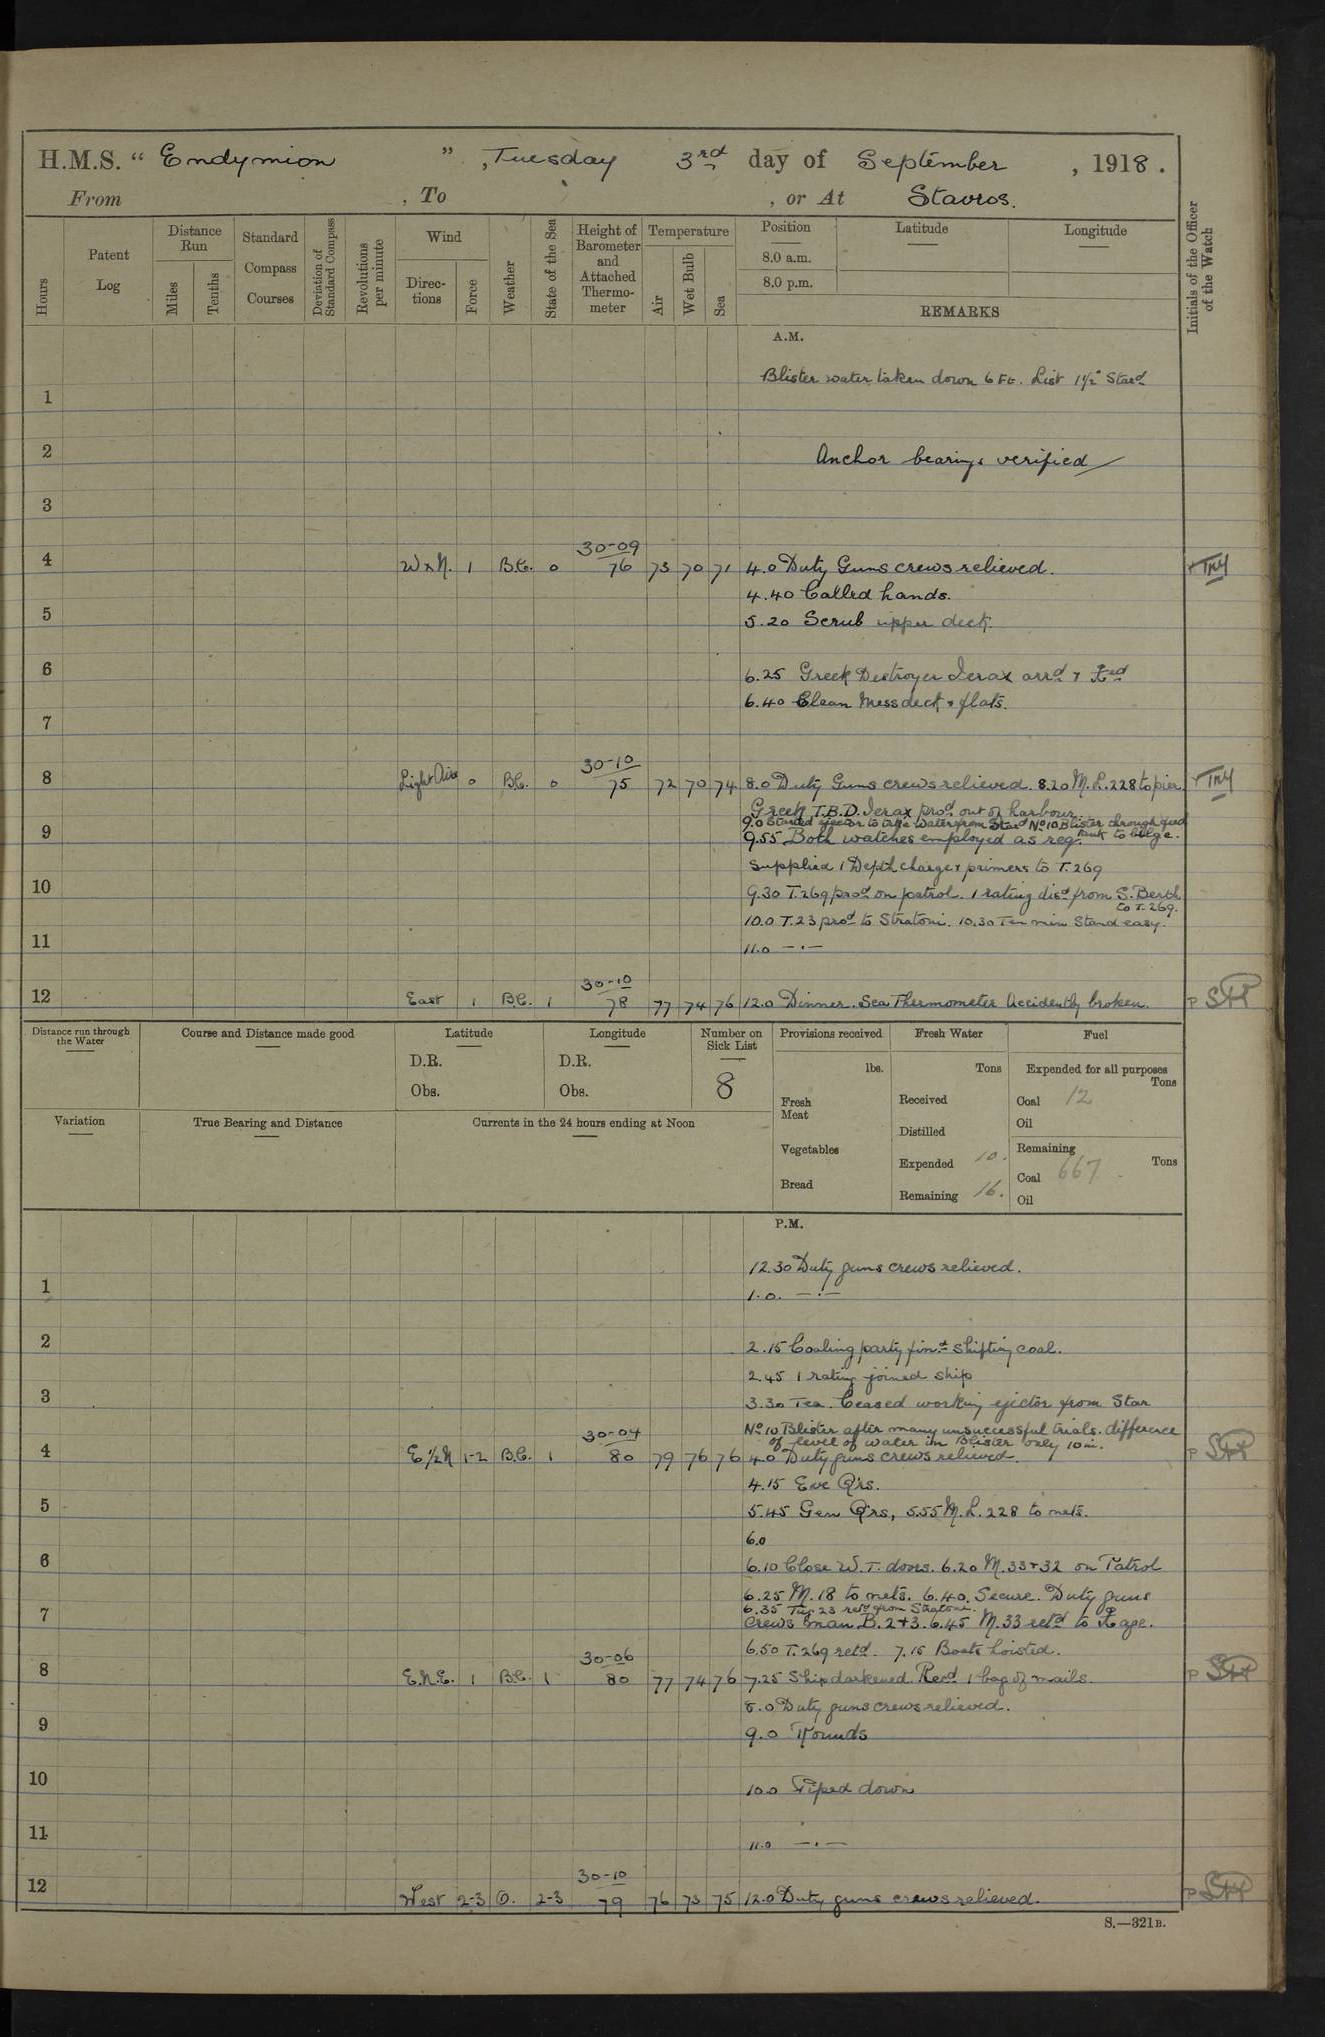 H.M.S. " Endymion ", Tuesday 3rd day of September, 1918.
From , To , or At Stavros.
Hours
Patent Log
Distance Run
Miles
Tenths
Standard Compass Courses
Deviation of Standard Compass
Revolutions per minute
Wind
Directions
Force
Weather
State of the Sea
Height of Barometer and Attached Thermometer
Temperature
Air
Wet Bulb
Sea
Position
8.0 a.m.
8.0 p.m.
Latitude
Longitude
REMARKS
Initials of the Officer of the Watch
A.M.
Blister water taken down 6 Ft. List 1½° Stard
1
2 Anchor bearings verified
3
30-09
4 W x N. 1 B.C. 0 76 73 70 71 4.0 Duty Guns crews relieved.
4.40 Called hands.
5 5.20 Scrub upper deck.
6 6.25 Greek Destroyer Ierax arrd &
6.40 Clean Messdeck & flats.
7
30-10
8 Light Airs 0 B.C. 0 75 72 70 74 8.0 Duty Guns crews relieved. 8.20 M.L. 228 to pier.
Greek T.B.D. Ierax prod out of harbour.
9.0 Started ejector to take water from Stard No 10 Blister through feed
9 9.55 Both watches employed as reqd. tank to bilge.
Supplied 1 Depth charge & primers to T. 269
10 9.30 T. 269 prod on patrol. 1 rating disd from S. Berth
to T. 269.
10.0 T. 23 prod to Stratoni. 10.30 Ten min Stand easy.
11 11.0 — . —
30-10
12 East 1 B.C. 1 78 77 74 76 12.0 Dinner. Sea Thermometer Accidently broken.
Distance run through the Water
Course and Distance made good
Latitude
D.R.
Obs.
Longitude
D.R.
Obs.
Number on Sick List
8
Provisions received
lbs.
Fresh Meat
Vegetables
Bread
Fresh Water
Tons
Received
Distilled
Expended 10.
Remaining 16.
Fuel
Expended for all purposes
Tons
Coal 12
Oil
Remaining
Tons
Coal 667
Oil
Variation
True Bearing and Distance
Currents in the 24 hours ending at Noon
P.M.
12.30 Duty guns crews relieved.
1 1.0. — . —
2 2.15 Coaling party find shifting coal.
2.45 1 rating joined ship
3 3.30 Tea. Ceased working ejector from Star
No 10 Blister after many unsuccessful trials. difference
30-04 of level of water in Blister only 10 in.
4 E ½ N 1-2 B.C. 1 80 79 76 76 4.0 Duty guns crews relieved.
4.15 Eve Qrs.
5 5.45 Gen Qrs, 5.55 M.L. 228 to nets.
6.0
6 6.10 Close W.T. doors. 6.20 M. 33 + 32 on Patrol
6.25 M. 18 to nets. 6.40. Secure. Duty guns
6.35 Tug 23 retd from Stratoni.
7 crews man B. 2 + 3. 6.45 M. 33 retd to
6.50 T. 269 retd. 7.15 Boats hoisted.
30-06
8 E.N.E. 1 B.C. 1 80 77 74 76 7.25 Ship darkened. Recd 1 bag of mails.
8.0 Duty guns crews relieved.
9 9.0 Rounds
10 10.0 Piped down
11 11.0 — . —
30-10
12 West 2-3 O. 2-3 79 76 73 75 12.0 Duty guns crews relieved.
S.—321B.